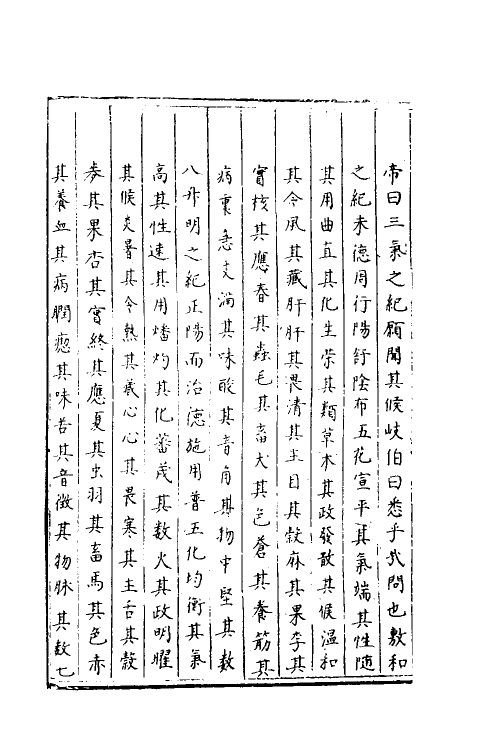 帝曰三氣之紀願聞其候岐伯曰悉乎哉問也敷和
之紀木德周行陽舒陰布五化宣平其氣端其性隨
其用曲直其化生榮其類草木其政發散其候溫和
其令風其藏肝肝其畏清其主目其穀麻其果李其
實核其應春其蟲毛其畜犬其色蒼其養筋其
病裏急支滿其味酸其音角其物中堅其數
八升明之紀正陽而治德施用普五化均衡其氣
高其性速其用燔灼其化蕃茂其數火其政明曜
其候炎暑其令熱其藏心心其畏寒其主舌其穀
麥其果杏其實終其應夏其虫羽其畜馬其色赤
其養血其病瞤瘛其味苦其音徵其物脉其数七